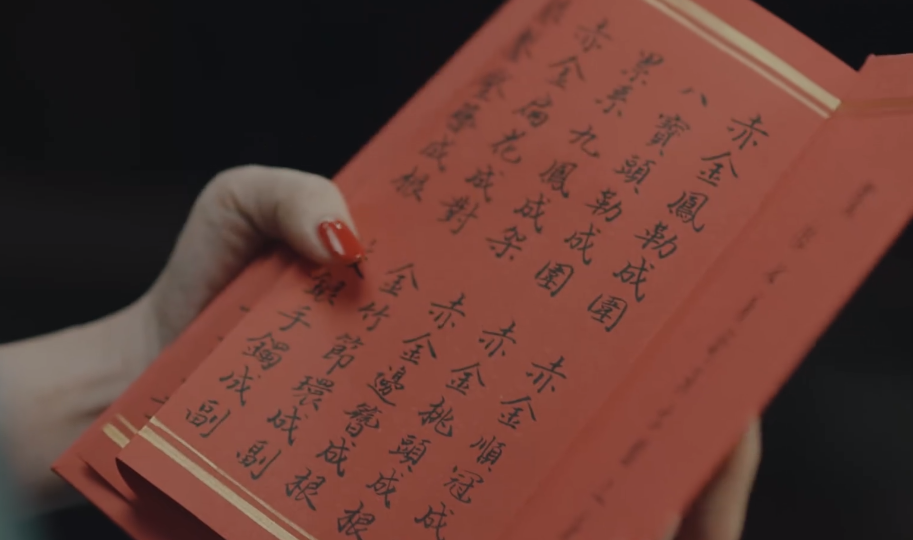 赤金鳳勒成圍
赤金順冠成
八寶頭勒成圍
赤金桃頭成根
累系九鳳成架
赤金邊簪成根
赤金扁花成對
金竹節環成副
成根
手鐲成副